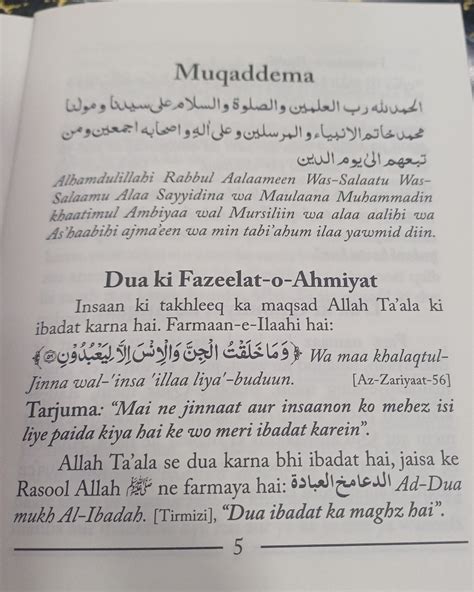 Muqaddema
الحمد لله رب العلمين والصلوة والسلام على سيدنا و مولنا
محمد خاتم الانبياء و المرسلين و على اله و اصحابه اجمعين و من
تبعهم الى يوم الدين
Alhamdulillahi Rabbul Aalaameen Was-Salaatu Was-
Salaamu Alaa Sayyidina wa Maulaana Muhammadin
khaatimul Ambiyaa wal Mursiliin wa alaa aalihi wa
As'haabihi ajma'een wa min tabi'ahum ilaa yawmid diin.
Dua ki Fazeelat-o-Ahmiyat
Insaan ki takhleeq ka maqsad Allah Ta'ala ki
ibadat karna hai. Farmaan-e-Ilaahi hai:
﴿وَمَا خَلَقْتُ الْجِنَّ وَالْاِنْسَ اِلَّا لِيَعْبُدُوْنِ﴾ Wa maa khalaqtul-
Jinna wal-'insa 'illaa liya'-buduun. [Az-Zariyaat-56]
Tarjuma: “Mai ne jinnaat aur insaanon ko mehez isi
liye paida kiya hai ke wo meri ibadat karein”.
Allah Ta'ala se dua karna bhi ibadat hai, jaisa ke
Rasool Allah ﷺ ne farmaya hai: الدعا مخ العبادة Ad-Dua
mukh Al-Ibadah. [Tirmizi], “Dua ibadat ka maghz hai”.
5